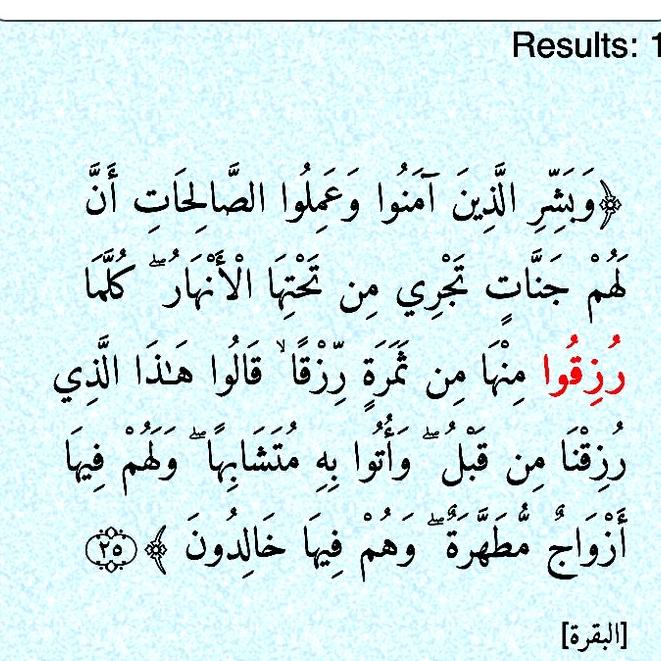 Results: 1
﴿وَبَشِّرِ الَّذِينَ آمَنُوا وَعَمِلُوا الصَّالِحَاتِ أَنَّ
لَهُمْ جَنَّاتٍ تَجْرِي مِن تَحْتِهَا الْأَنْهَارُ ۖ كُلَّمَا
رُزِقُوا مِنْهَا مِن ثَمَرَةٍ رِّزْقًا ۙ قَالُوا هَـٰذَا الَّذِي
رُزِقْنَا مِن قَبْلُ ۖ وَأُتُوا بِهِ مُتَشَابِهًا ۖ وَلَهُمْ فِيهَا
أَزْوَاجٌ مُّطَهَّرَةٌ ۖ وَهُمْ فِيهَا خَالِدُونَ ﴾ ٢٥
[البقرة]